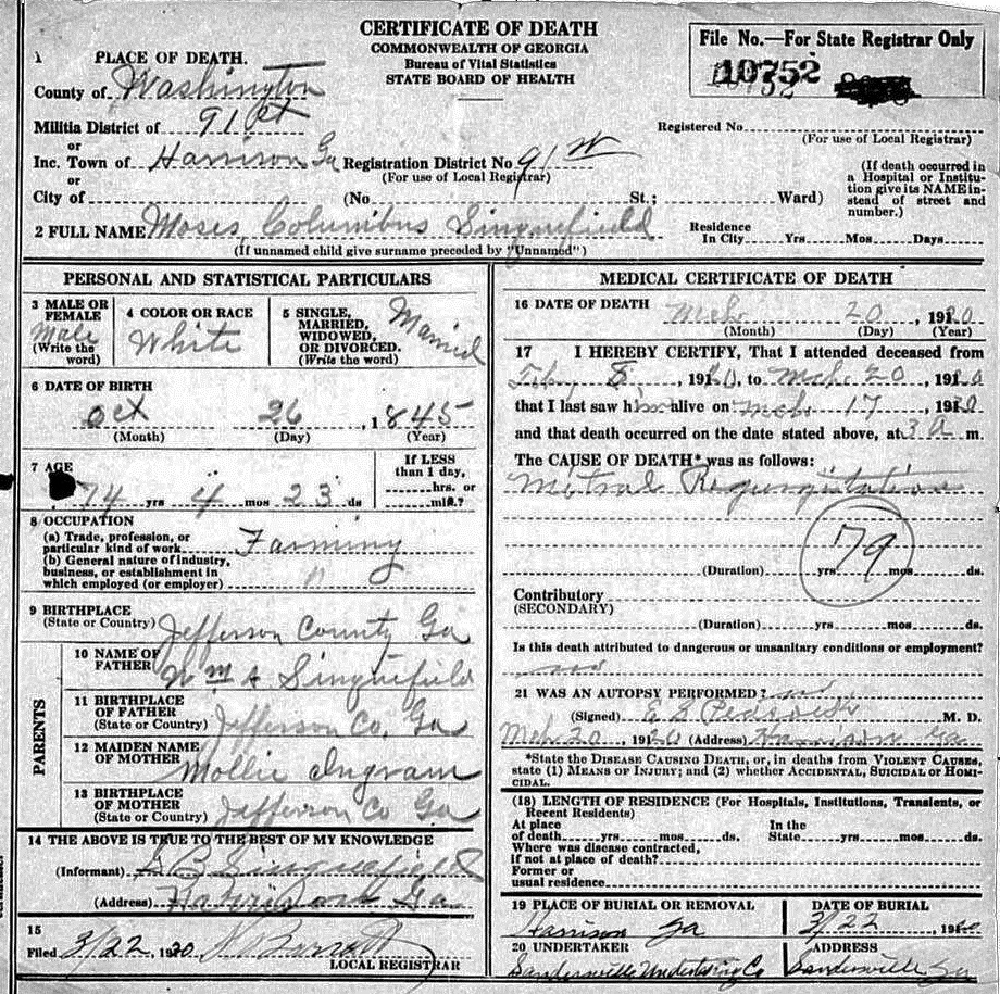 CERTIFICATE OF DEATH
COMMONWEALTH OF GEORGIA
Bureau of Vital Statistics
STATE BOARD OF HEALTH
File No.—For State Registrar Only
10752
1 PLACE OF DEATH.
County of Washington
Militia District of 91st
or
Inc. Town of Harrison Ga Registration District No. 91st
(For use of Local Registrar)
or
City of (No. St.; Ward)
Registered No.
(For use of Local Registrar)
(If death occurred in
a Hospital or Institu-
tion give its NAME in-
stead of street and
number.)
2 FULL NAME Moses Columbus Sinquefield
(If unnamed child give surname preceded by "Unnamed")
Residence
In City Yrs Mos Days
PERSONAL AND STATISTICAL PARTICULARS
3 MALE OR
FEMALE
Male
(Write the
word)
4 COLOR OR RACE
White
5 SINGLE,
MARRIED,
WIDOWED,
OR DIVORCED.
(Write the word)
Married
6 DATE OF BIRTH
Oct 26, 1845
(Month) (Day) (Year)
7 AGE
74 yrs 4 mos 23 ds
If LESS
than 1 day,
hrs. or
min.?
8 OCCUPATION
(a) Trade, profession, or
particular kind of work Farming
(b) General nature of industry,
business, or establishment in
which employed (or employer) "
9 BIRTHPLACE
(State or Country) Jefferson County Ga
PARENTS
10 NAME OF
FATHER Wm A Sinquefield
11 BIRTHPLACE
OF FATHER
(State or Country) Jefferson Co. Ga
12 MAIDEN NAME
OF MOTHER
Mollie Ingram
13 BIRTHPLACE
OF MOTHER
(State or Country) Jefferson Co Ga
14 THE ABOVE IS TRUE TO THE BEST OF MY KNOWLEDGE
(Informant) B Sinquefield
(Address) Ga
15
Filed 3/22 1920
LOCAL REGISTRAR
MEDICAL CERTIFICATE OF DEATH
16 DATE OF DEATH
Mch 20, 1920
(Month) (Day) (Year)
17 I HEREBY CERTIFY, That I attended deceased from
Feby 8, 1920, to Mch. 20 1920
that I last saw him alive on Mch 17, 1920
and that death occurred on the date stated above, at 3 a m.
The CAUSE OF DEATH* was as follows:
Mitral Regurgitation
79
(Duration) yrs mos ds.
Contributory
(SECONDARY)
(Duration) yrs mos ds.
Is this death attributed to dangerous or unsanitary conditions or employment?
no
21 WAS AN AUTOPSY PERFORMED? no
(Signed) M. D.
Mch 20, 1920 (Address) Harrison Ga
*State the DISEASE CAUSING DEATH, or, in deaths from VIOLENT CAUSES,
state (1) MEANS OF INJURY; and (2) whether ACCIDENTAL, SUICIDAL OR HOMI-
CIDAL.
(18) LENGTH OF RESIDENCE (For Hospitals, Institutions, Transients, or
Recent Residents)
At place
of death yrs mos ds.
In the
State yrs mos ds.
Where was disease contracted,
if not at place of death?
Former or
usual residence
19 PLACE OF BURIAL OR REMOVAL
Harrison Ga
DATE OF BURIAL
3/22, 1920
20 UNDERTAKER
Sandersville Undertaking Co
ADDRESS
Sandersville Ga